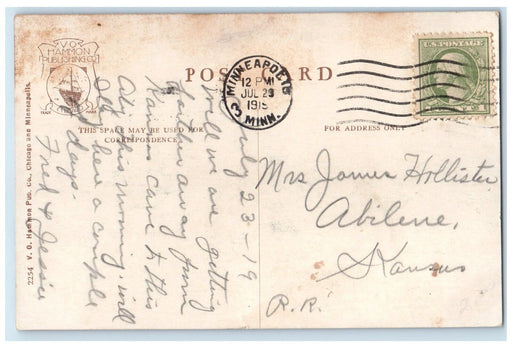 V.O.
HAMMON
PUBLISHING CO.
POST CARD
MINNEAPOLIS
12 PM
JUL 23
1919
MINN.
U.S. POSTAGE
THIS SPACE MAY BE USED FOR
CORRESPONDENCE
FOR ADDRESS ONLY
2254 V. O. Hammon Pub. Co., Chicago and Minneapolis.
July 23-19
Well we are getting
farther away from
Kansas came to this
this morning will
be here a couple
days.
Fred & Jessie
Mrs James Hollister
Abilene,
Kansas
R.R.